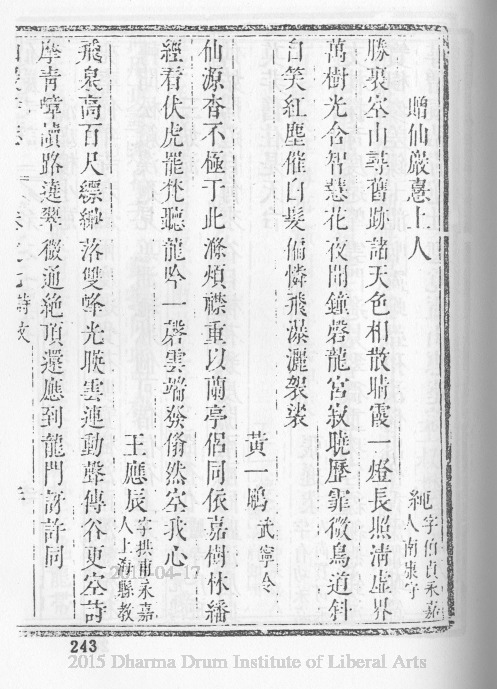 贈仙巖憙上人
字伯貞永嘉
勝裏空山尋舊跡諸天色相散晴霞一燈長照清虛界
萬樹光含智慧花夜聞鐘磬龍宮寂曉歷霏微鳥道斜
自笑紅塵催白髮偏憐飛瀑灑袈裟
黃一鵬 武寧令
仙源杳不極于此滌煩襟重以蘭亭侶同依嘉樹林繙
經看伏虎罷梵聽龍吟一磬雲端發翛然空我心
王應辰 字拱甫永嘉人上海縣教
飛泉高百尺縹緲落雙峰光映雲連動聲傳谷更空詩
摩青嶂讀路遶翠微通絕頂還應到龍門訝許同
卷之七 詩文
243
2015 Dharma Drum Institute of Liberal Arts